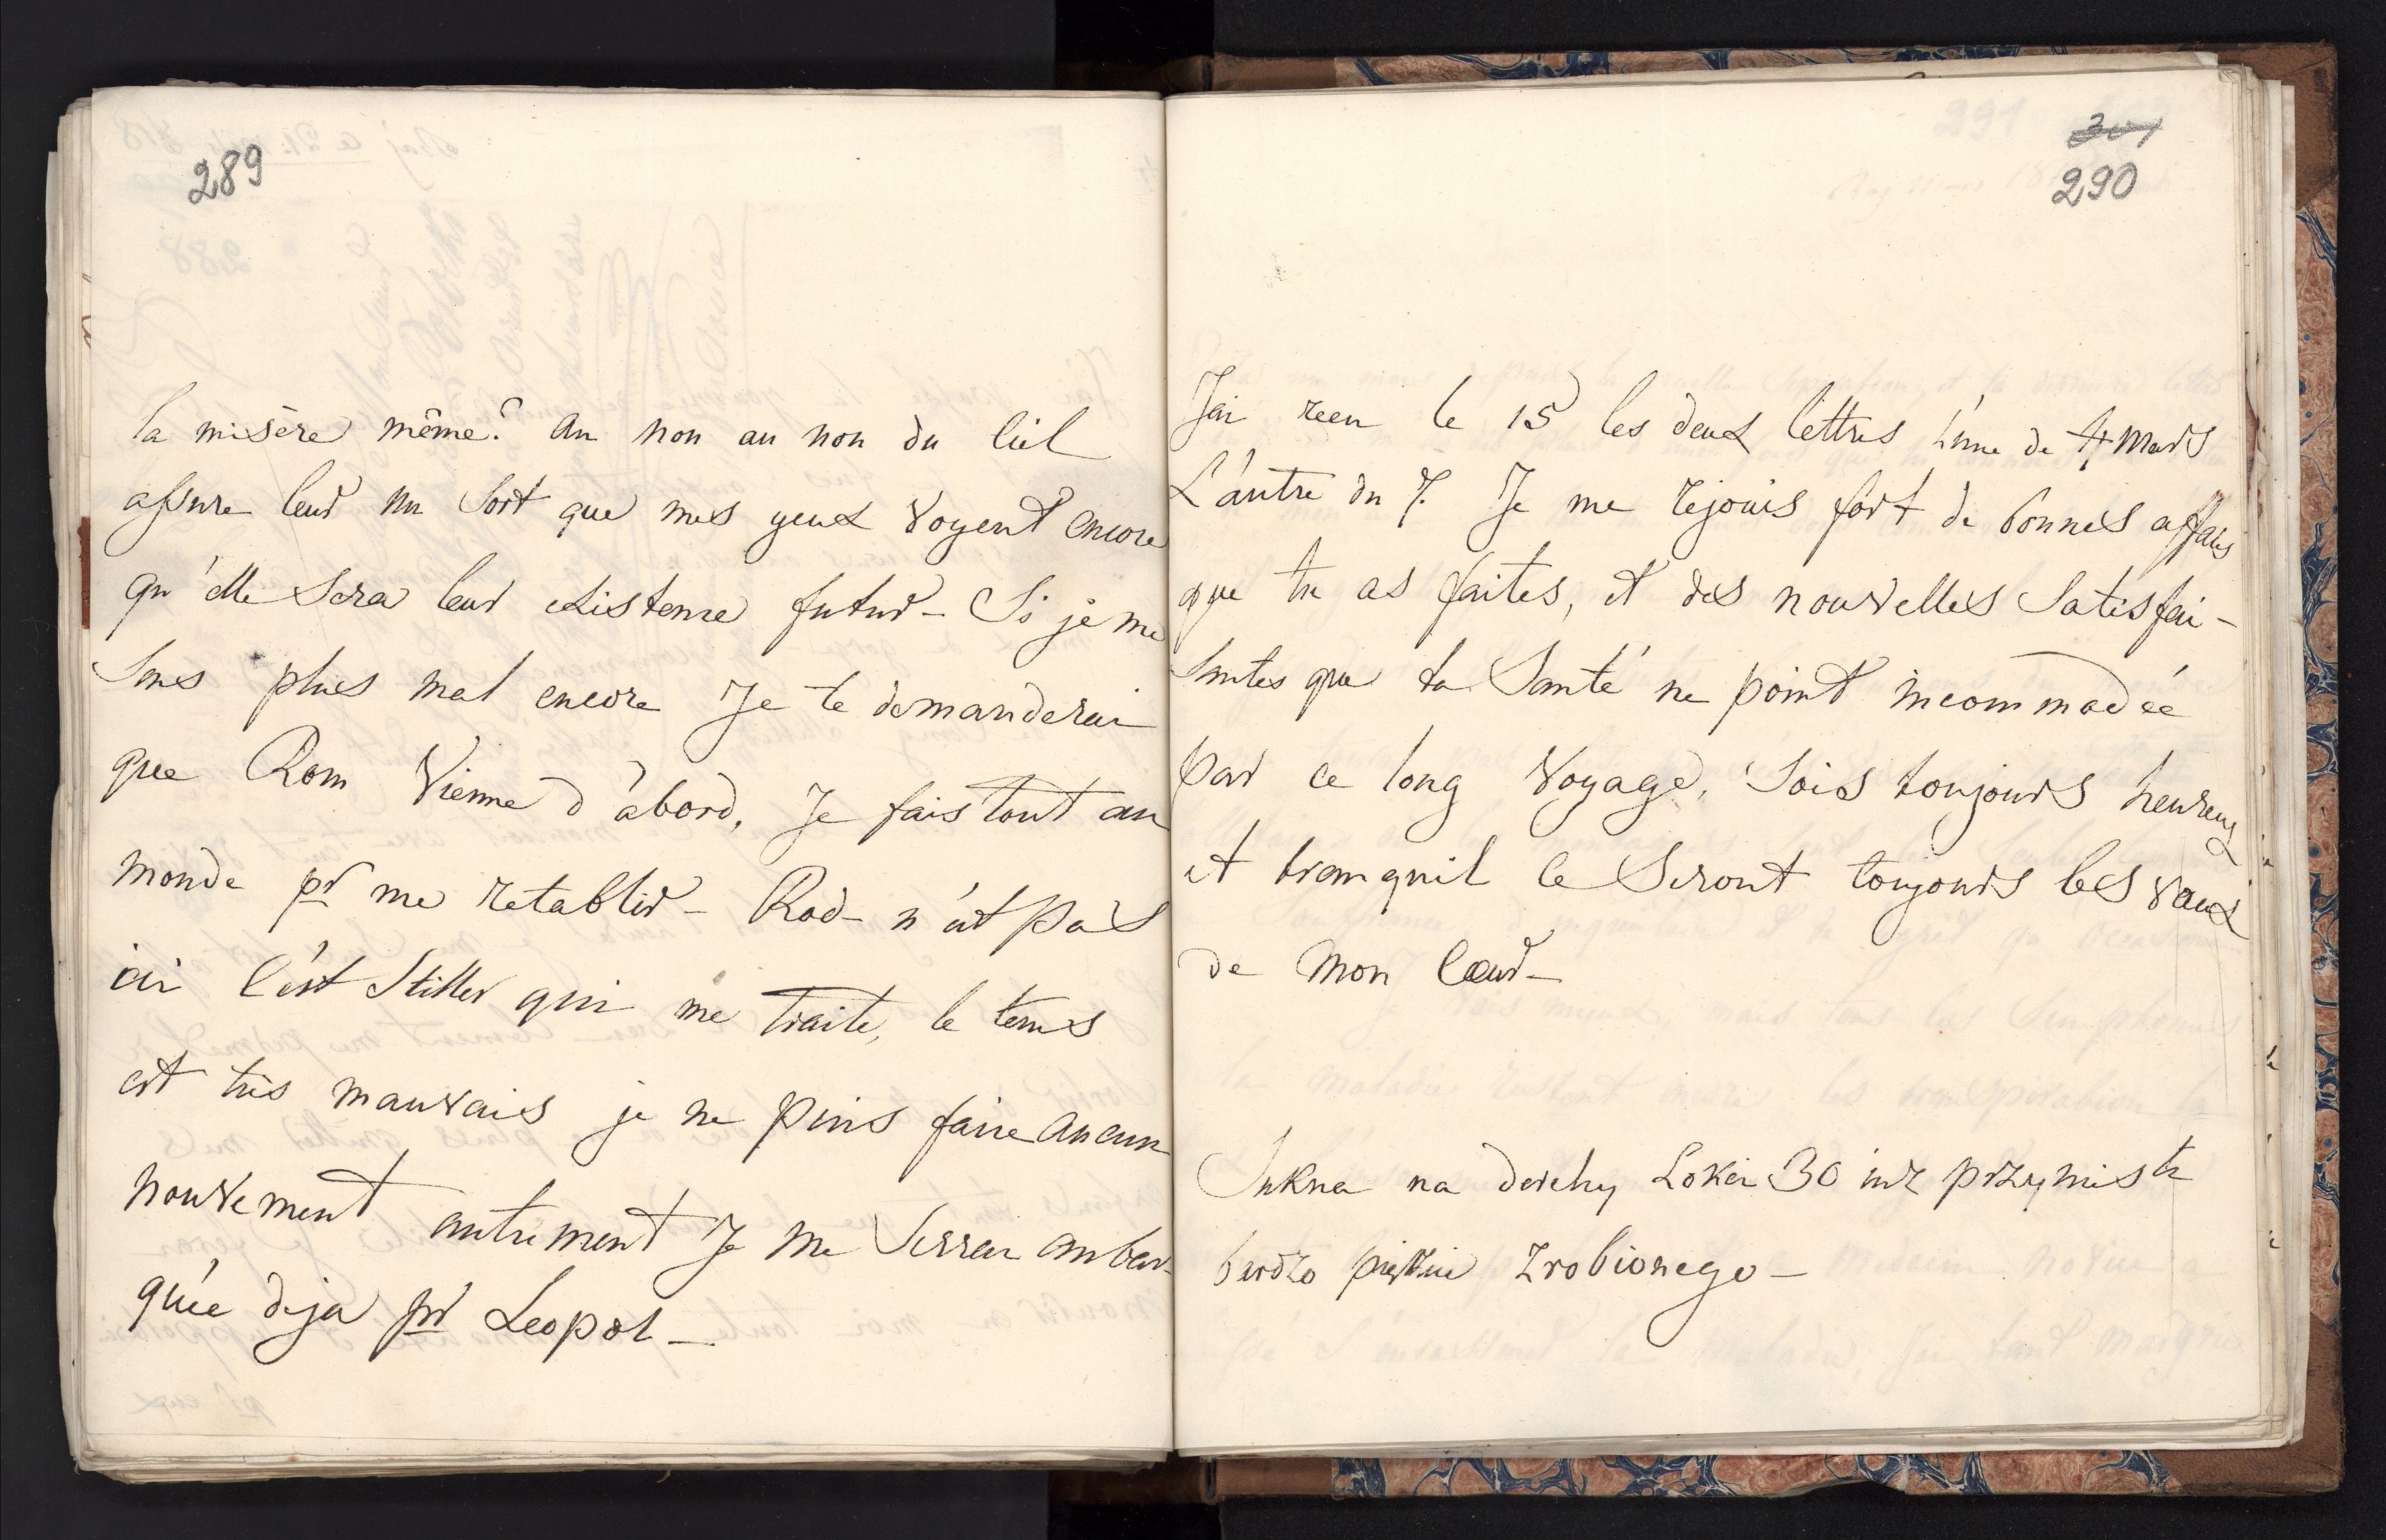 289
la misère même? au non au non du Ciel
assure leur un Sort que mes yeux voyent encore
qu'elle Sera leur existence futur - Si je me
Sens plus mal encore Je te demanderai
que Rom Vienne d'àbord, Je fais tout au
monde pr me retablir - Rod - n'ét pas
ici C'est Stiller qui me traite, le tems
est très mauvais je ne puis faire aucun
mouvement autrement Je me Serrai enbar-
quée deja pr Leopol -
301
290
J'ai recu le 15 les deux lettres l'une de 4 Mars
L'àutre du 7. Je me rejouis fort de bonnes affais
que tu as faites, et des nouvelles Satisfai-
santes que ta Santé ne point incommodée
par ce long voyage, Sois toujours heureux
et tranquil ce Seront toujours les vœux
de mon Cœur -
Sukna na derchy Lokci 30 juz przymiste
bardzo pięknie zrobionego -